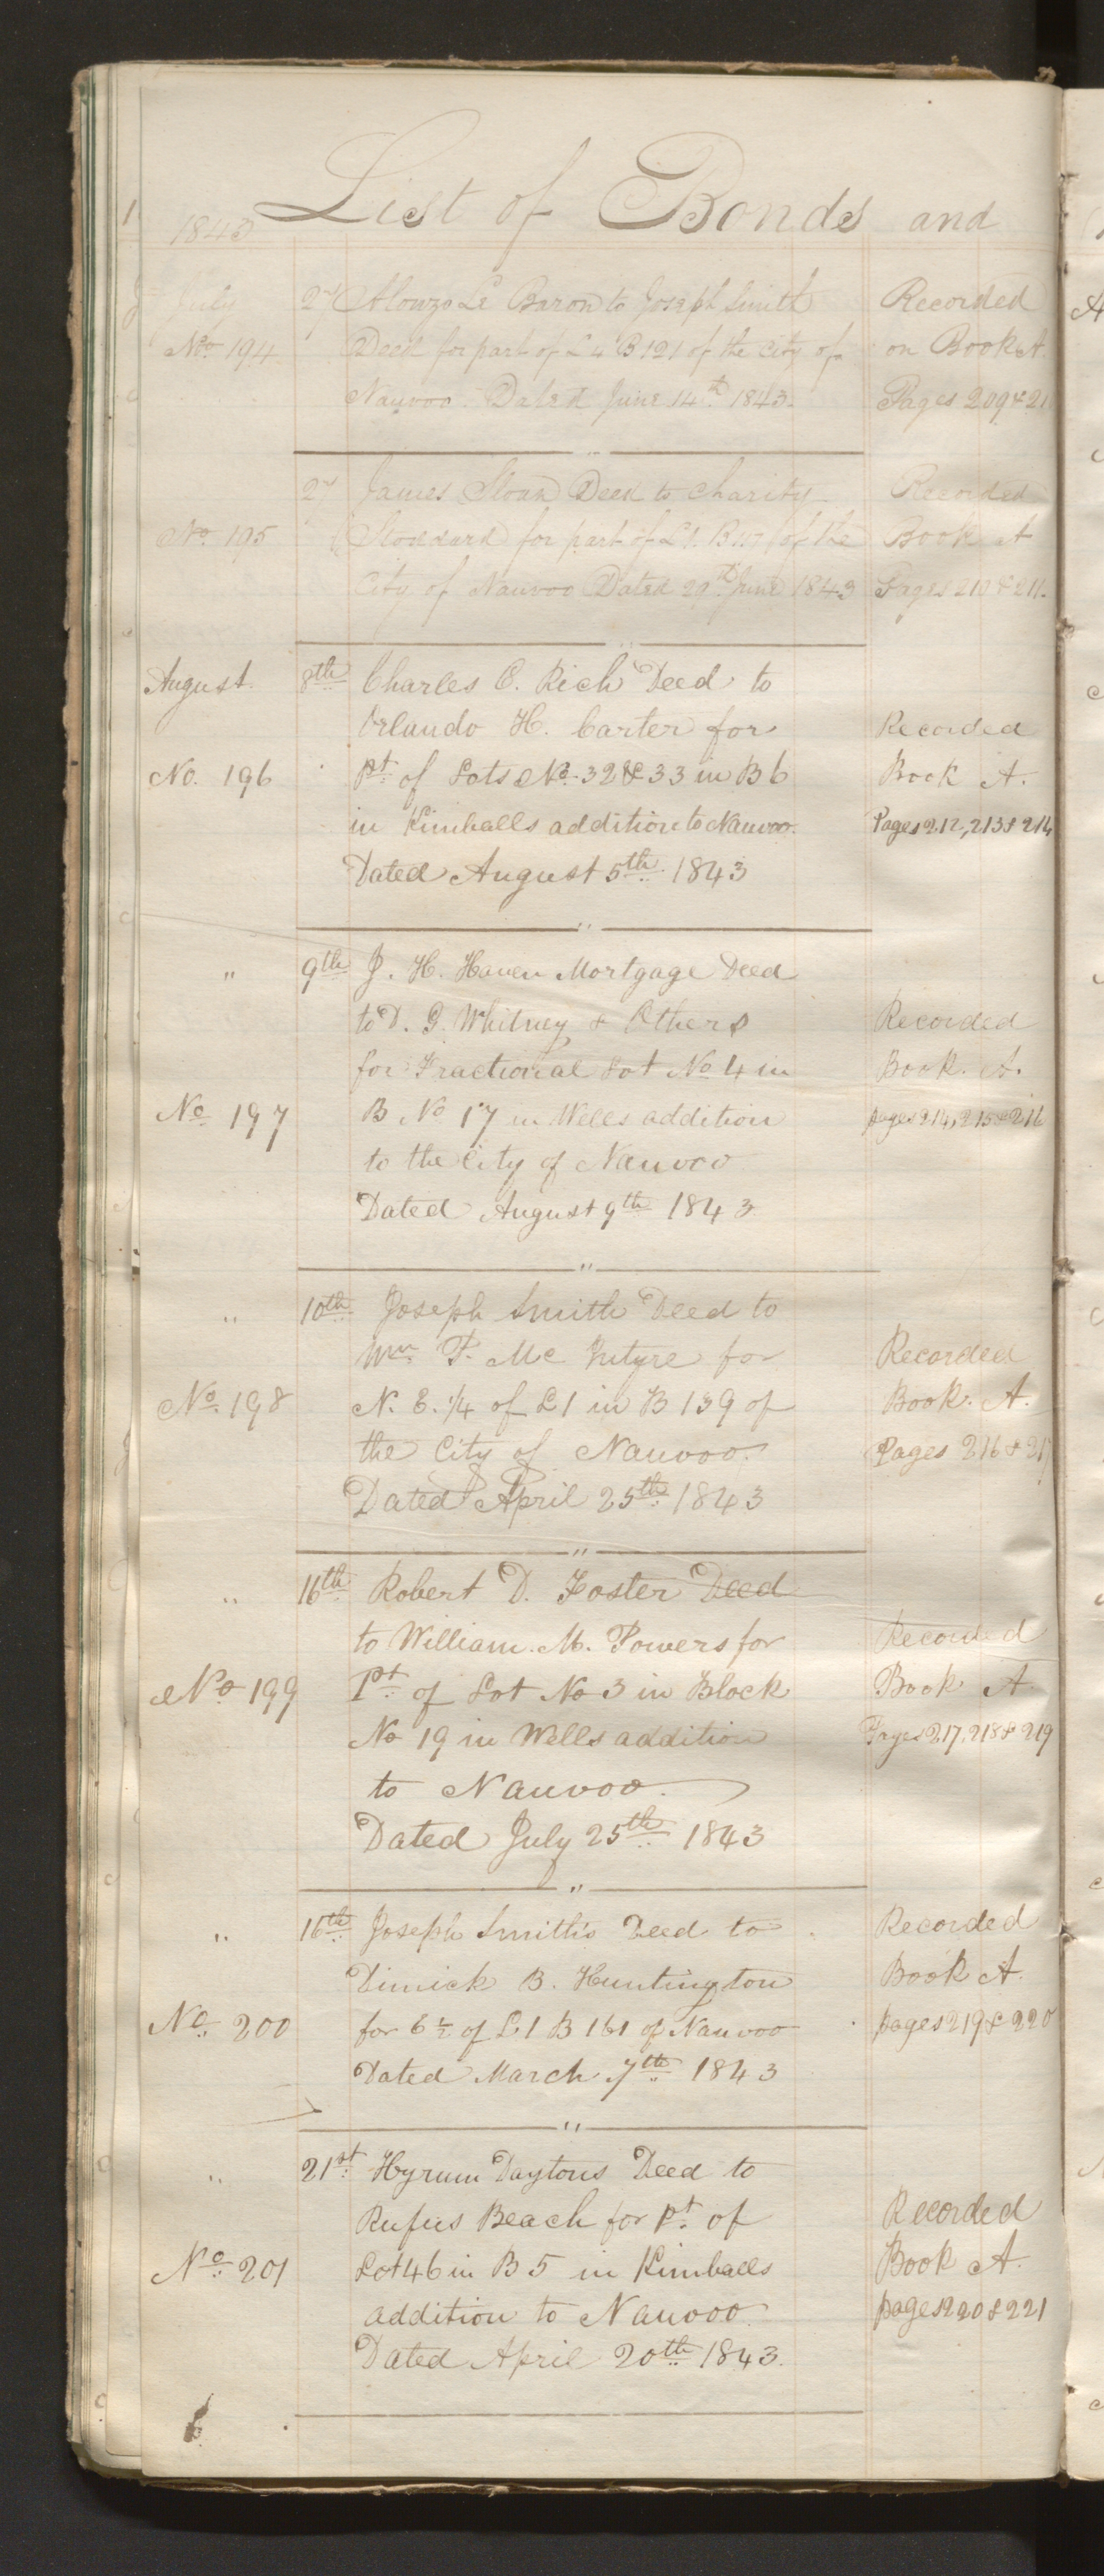 List of Bonds and
1843
July 2nd Alonzo Le Baron to Joseph Smith Recorded
No. 194 Deed for part of L 4 B 121 of the city of on Book A.
Nauvoo. Dated June 14th 1843. Pages 209 & 21
2nd James Sloan Deed to Charity Recorded
No. 195 Stoddard for part of L 1. B 117 of the Book A
City of Nauvoo Dated 29th June 1843 Pages 210 & 211.
August. 8th Charles C. Rich Deed to
Orlando H. Carter for Recorded
No. 196 Pt of Lots No. 32 & 33 in B 6 Book A.
in Kimballs addition to Nauvoo. Pages 212, 213 & 214
Dated August 5th 1843
" 9th J. H. Haven Mortgage Deed
to D. G. Whitney & Others Recorded
for Fractional Lot No 4 in Book. A.
No. 197 B No 17 in Wells addition pages 214, 215 & 216
to the City of Nauvoo
Dated August 9th 1843
" 10th Joseph Smith Deed to
Wm. P. Mc Intyre for Recorded
No. 198 N. E. 1/4 of L 1 in B 139 of Book. A.
the City of Nauvoo. Pages 216 & 217
Dated April 25th 1843
" 16th Robert D. Foster Deed
to William. M. Powers for Recorded
No 199 Pt of Lot No 3 in Block Book A
No 19 in Wells addition Pages 217, 218 & 219
to Nauvoo.
Dated July 25th 1843
" 16th Joseph Smith's Deed to Recorded
Dimick B. Huntington Book A.
No. 200 for of L 1 B 161 of Nauvoo pages 219 & 220
Dated March 7th 1843
" 21st Hyrum Daytons Deed to
Rufus Beach for Pt. of Recorded
No. 201 Lot 46 in B 5 in Kimballs Book A.
addition to Nauvoo. pages 220 & 221
Dated April 20th 1843.